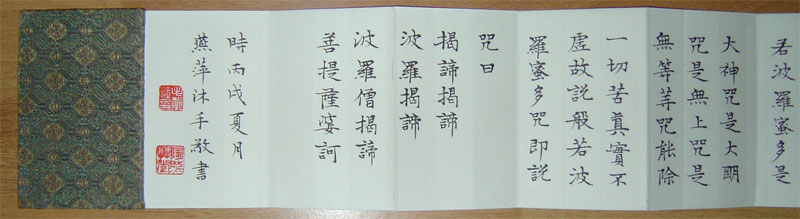 若波羅蜜多是
大神咒是大明
咒是無上咒是
無等等咒能除
一切苦真實不
虛故說般若波
羅蜜多咒即說
咒曰
揭諦揭諦
波羅揭諦
波羅僧揭諦
菩提薩婆訶
時丙戌夏月
燕萍沐手敬書